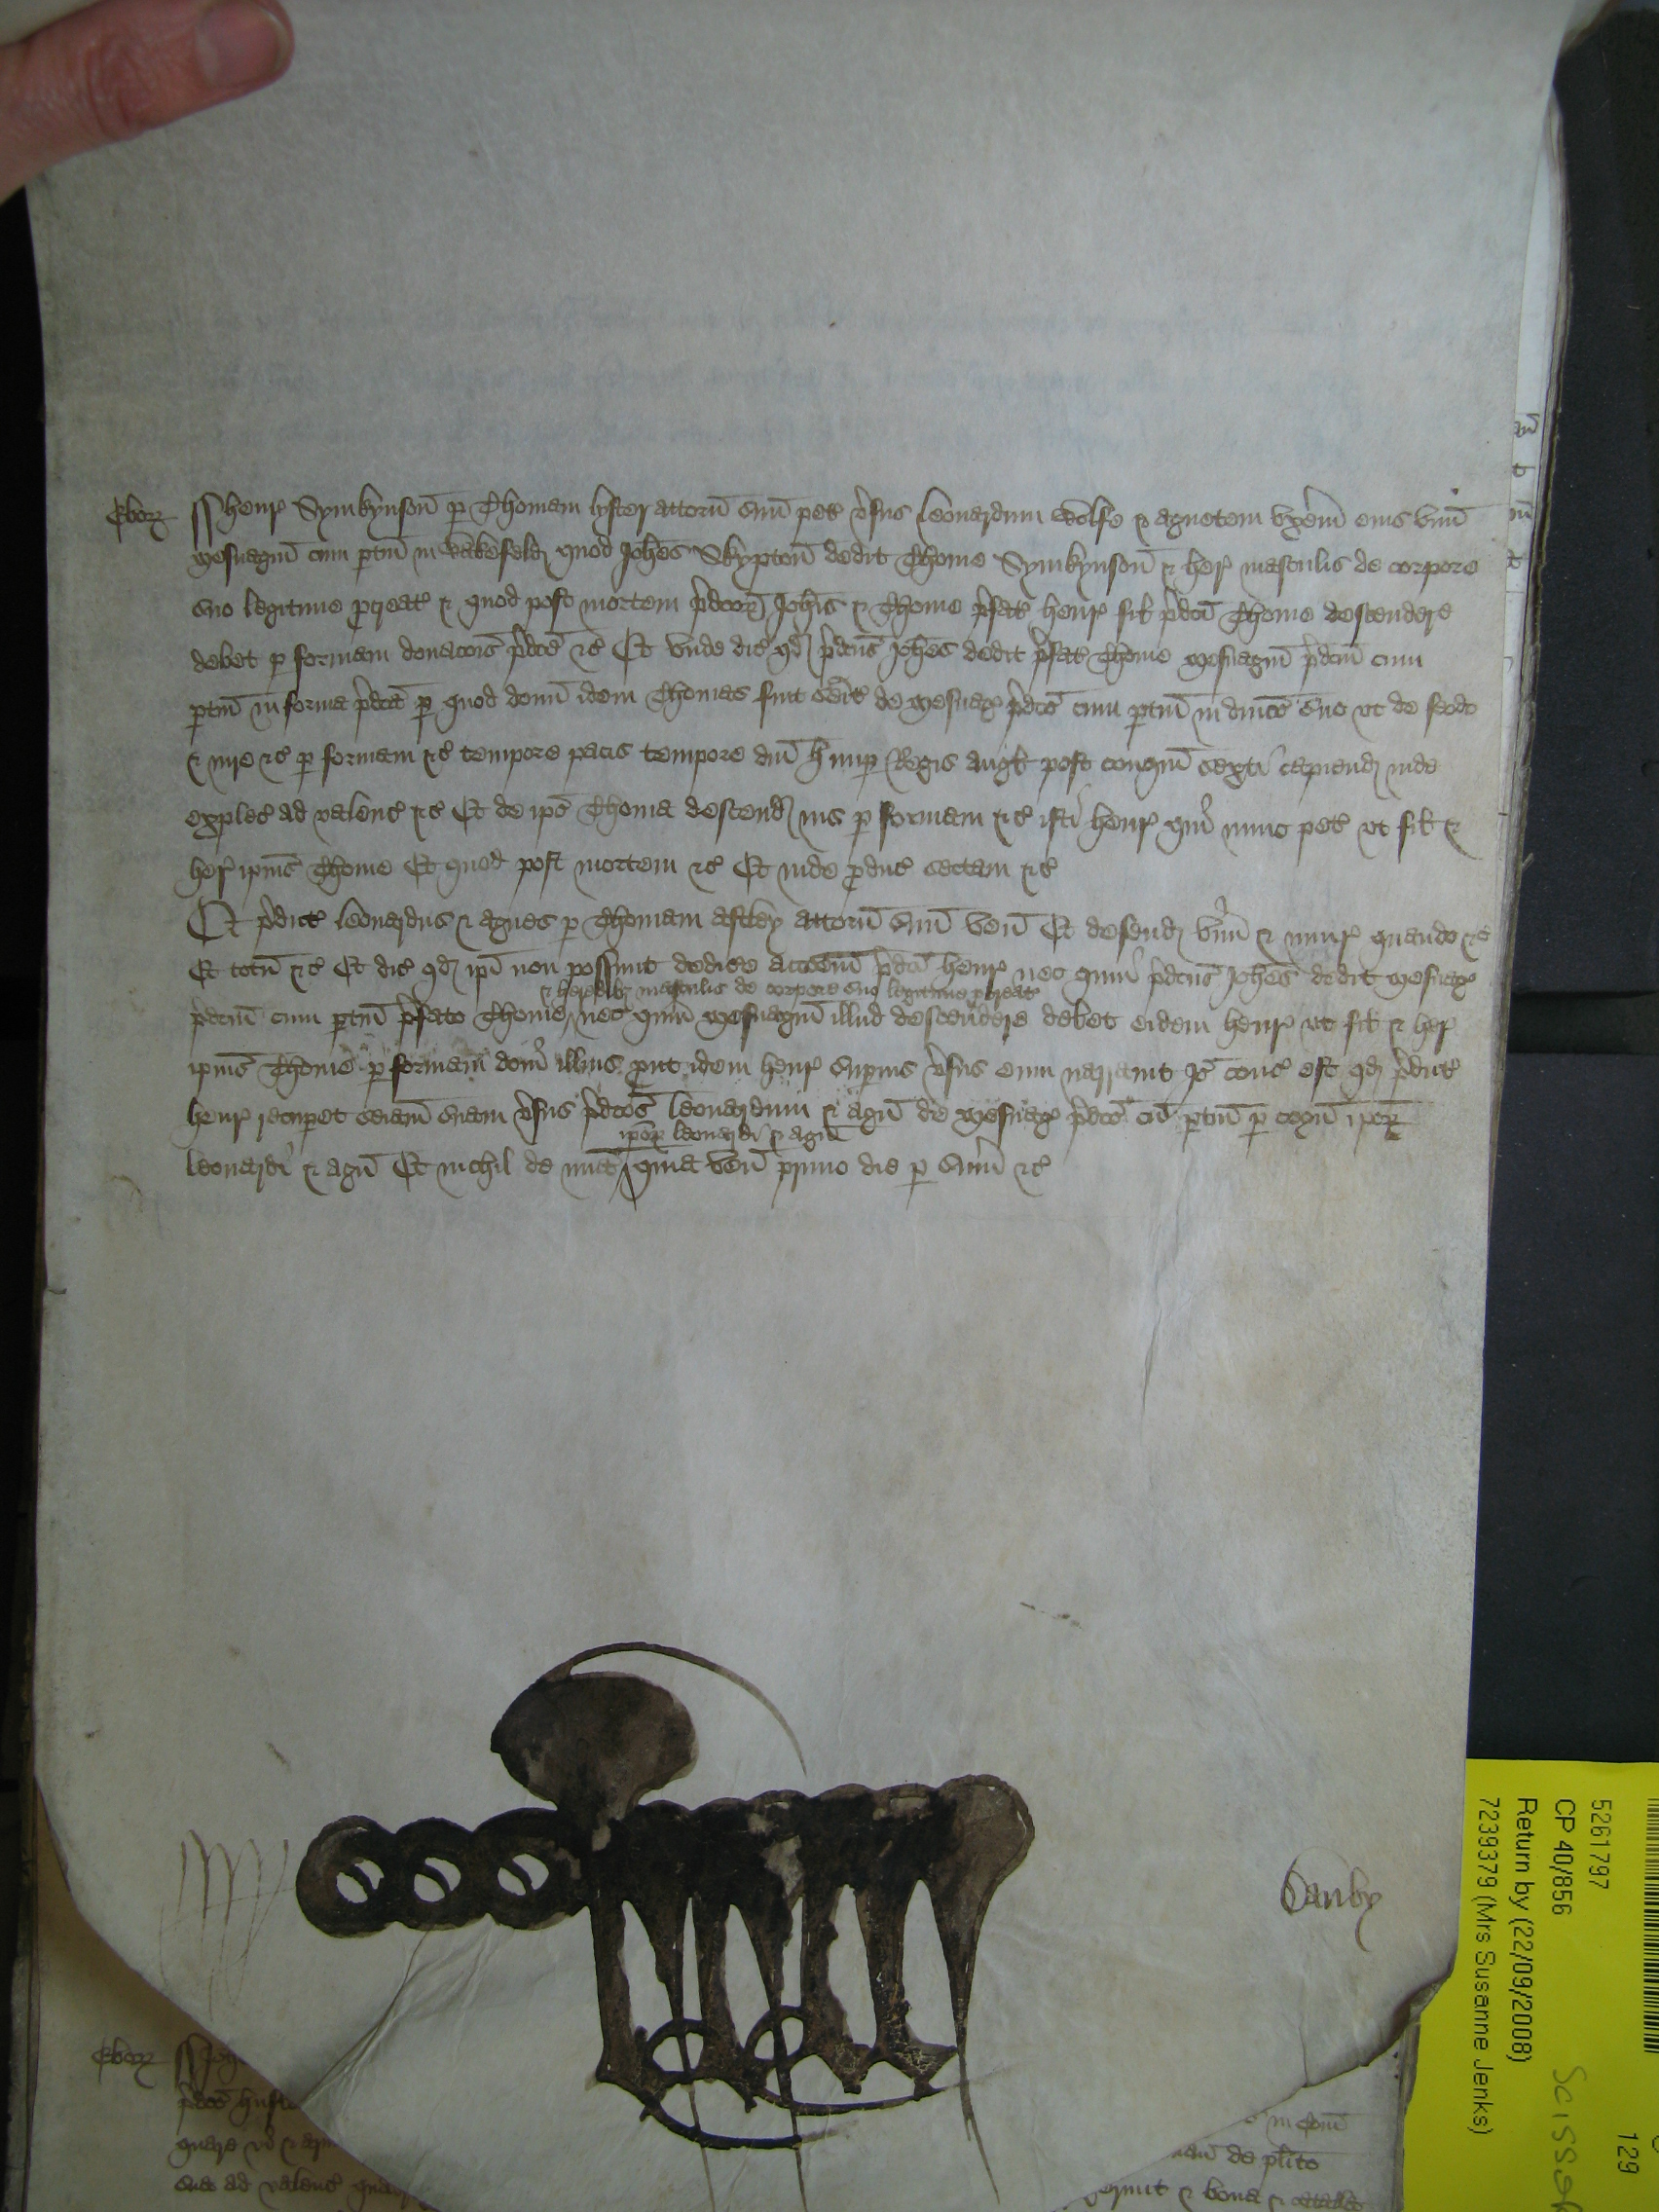 Ebor
Henr Symkynson p Thomam lyster attorn suu pet vsus Leonardum Wolfe & Agnetem uxem eius unu
mesuagiu cum ptin in Wakefeld quod Johes Skypton dedit Thome Symkynson & her masculis de corpore
suo legitime pcreat & quod post mortem pdcor Johis & Thome pfat Henr fil pdci Thome descendere
debet p formam donacois pdce &c Et unde dic qd pdcus Johes dedit pfat Thome mesuagiu pdcm cum
ptin in forma pdca p quod donu idem Thomas fuit seit de mesuag pdco cum ptin in dnico suo ut de feodo
& iure &c p formam &c tempore pacis tempore dni H nup Regis Angl post conqm sexti capiend inde
exples ad valenc &c Et de ipo Thoma descend ius p formam &c isti Henr qui nunc pet ut fil &
her ipius Thome Et quod post mortem &c Et inde pduc sectam &c
Et pdict Leonardus & Agnes p Thomam Astley attorn suu ven Et defend vim & iniur quando &c
Et totu &c Et dic qd ipi non possunt dedicere accoem pdci Henr nec quin pdcus Johes dedit mesuag
& heredibz masculis de corpore suo legitime pcreat
pdcm cum ptin pfato Thome nec quin mesuagiu illud descendere debet eidem Henr ut fil & her
ipius Thome p formam doni illius put idem Henr supius vsus eum narravit Io conc est qd pdict
Henr recupet seiam suam vsus pdcos Leonardum & Agn de mesuag pdco cu ptin p cogn ipor
ipor Leonardi & Agn
Leonardi & Agn Et nichil de mia quia ven primo die p sum &c
Danby
Ebor
pdcos
quare vi & arm
suos ad valenc
in Com
de plito
& bona & catalla
5261797
CP 40/856
Return by (22/09/2008)
7239379 (Mrs Susanne Jenks)
129